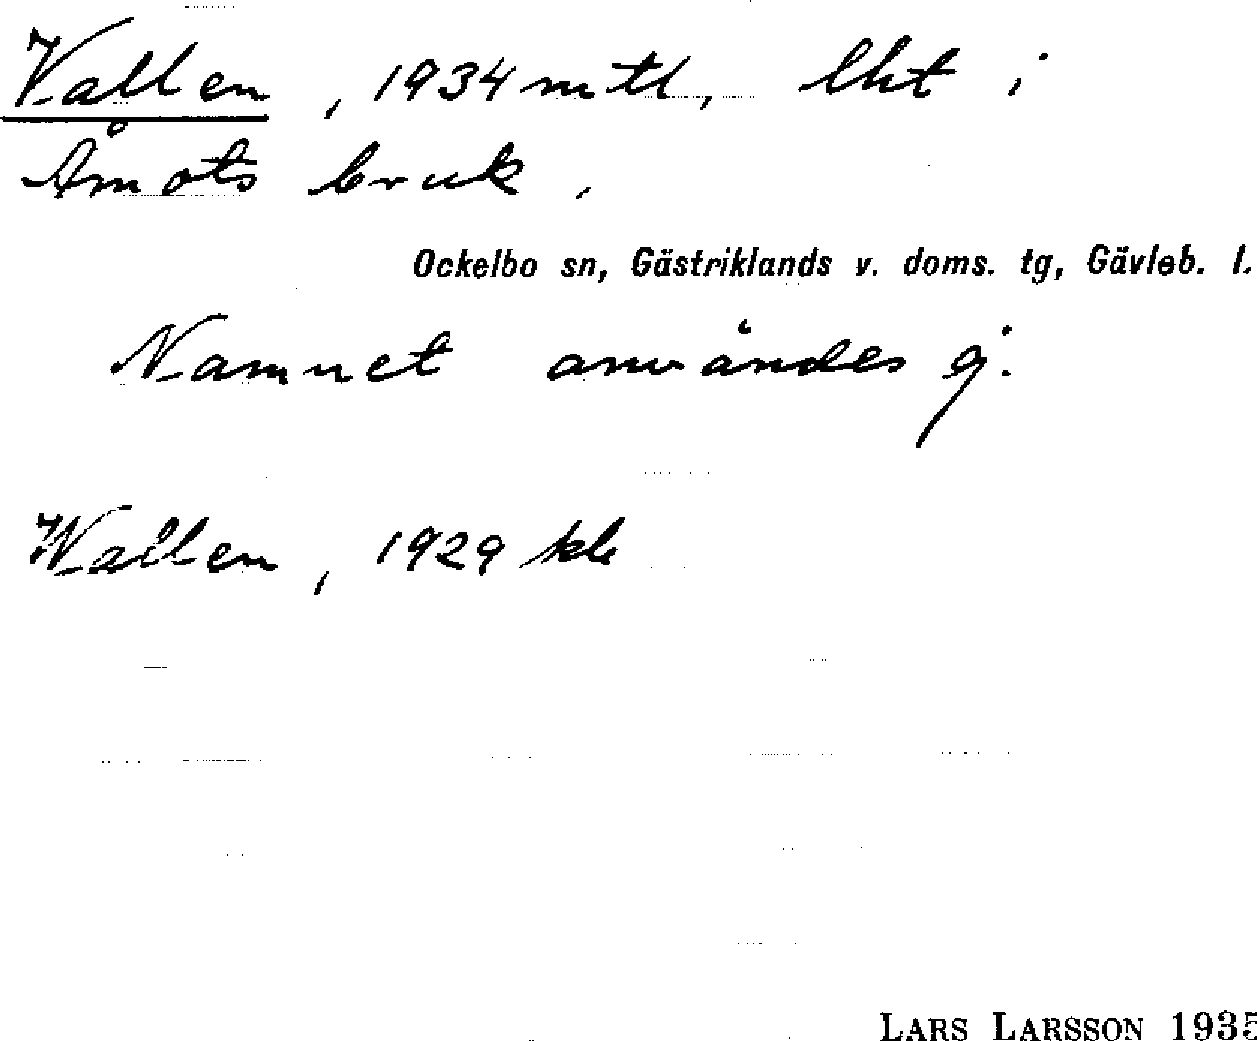 Vallen, 1934 mtl, lht i
Åmots bruk.
Ockelbo sn, Gästriklands v. doms. tg, Gävleb. l.
Namnet användes ej.
Wallen, 1929 kb
LARS LARSSON 1935